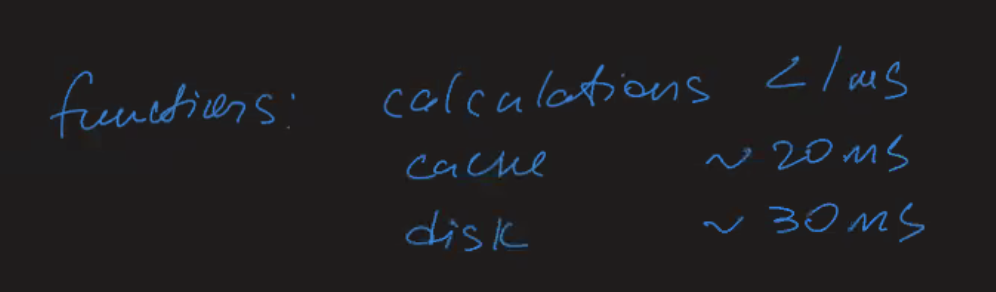 functions: calculations <1ms
cache ~20ms
disk ~30ms